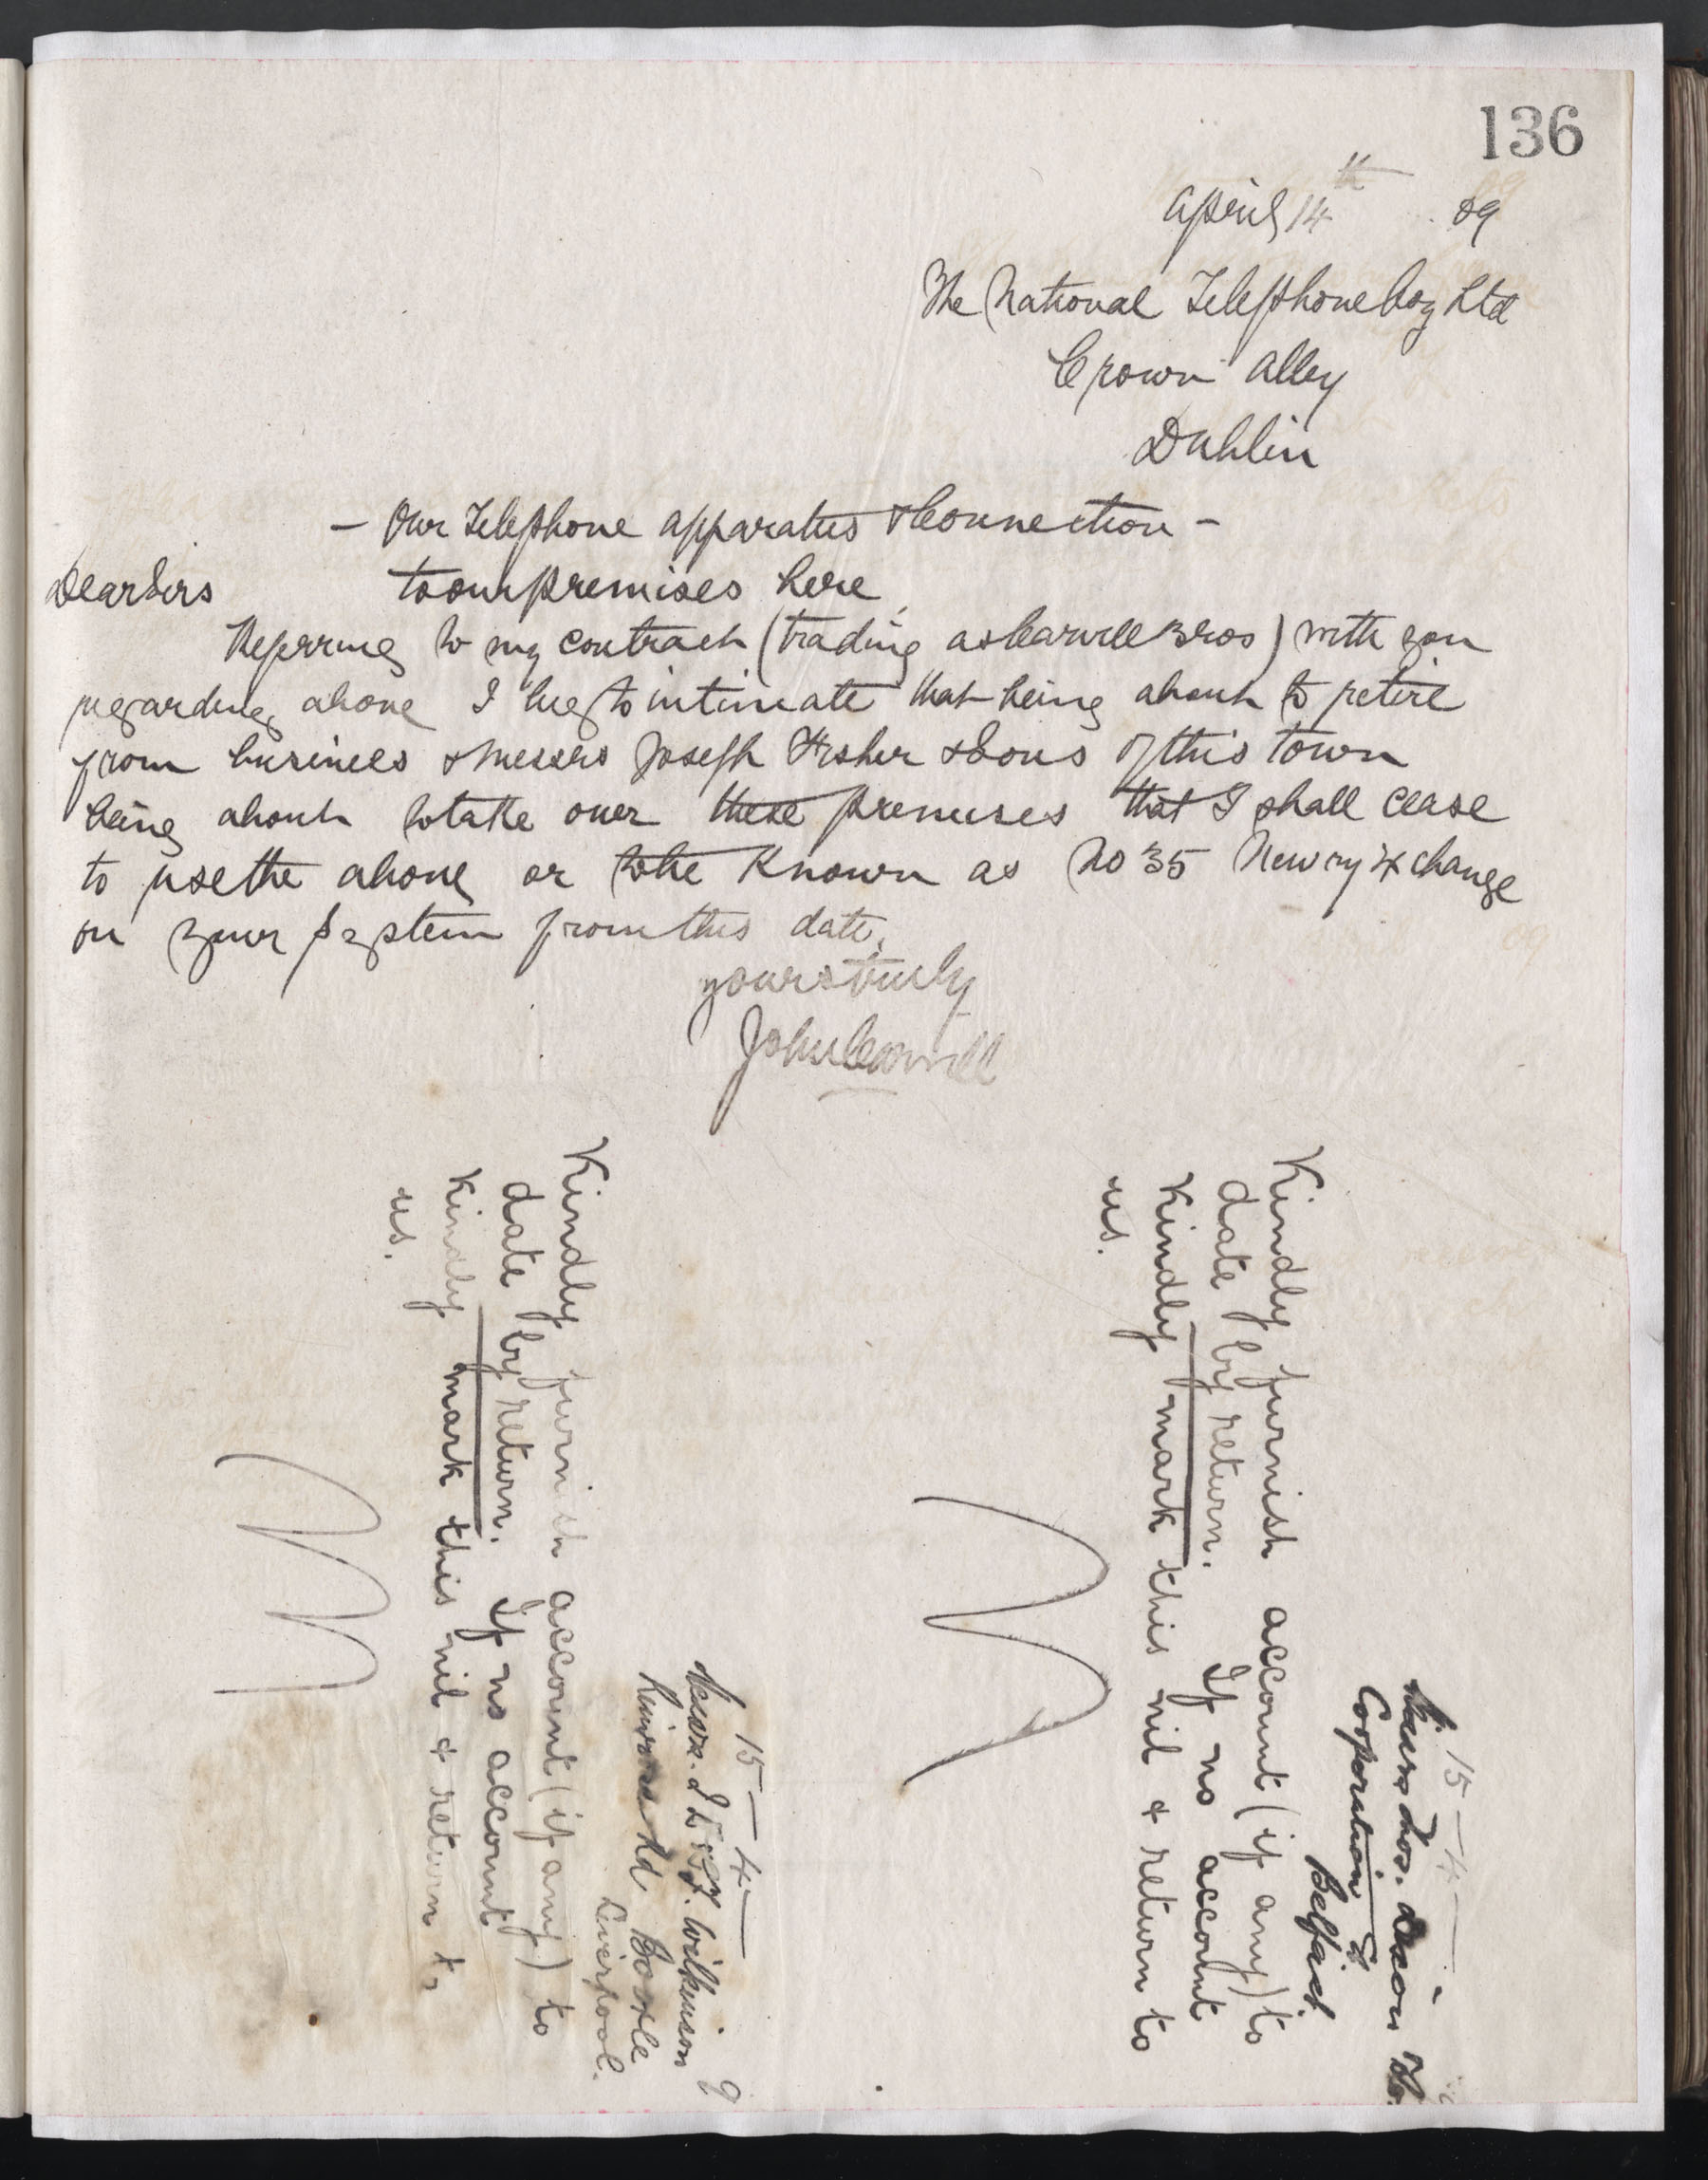 136
April 14th 09
The National Telephone Coy Ltd
Crown Alley
Dublin
- Our Telephone apparatus & Connection -
Dear Sirs to our premises here
Referring to my contract (trading as Carvill Bros) with you
regarding above I beg to intimate that being about to retire
from business & Messrs Joseph Fisher & Sons of this town
being about to take over these premises that I shall cease
to use the above or to be known as No 35 Newry Xchange
on your System from this date.
yours truly
John Carvill
15-4- 9
Messrs. Wilkinson
Rd Bootle
Liverpool.
Kindly furnish account (if any) to
date by return. If no account
kindly mark this nil & return to
us.
15-4-
Messrs Thos.
Cooperation St
Belfast
Kindly furnish account (if any) to
date by return. If no account
kindly mark this nil & return to
us.